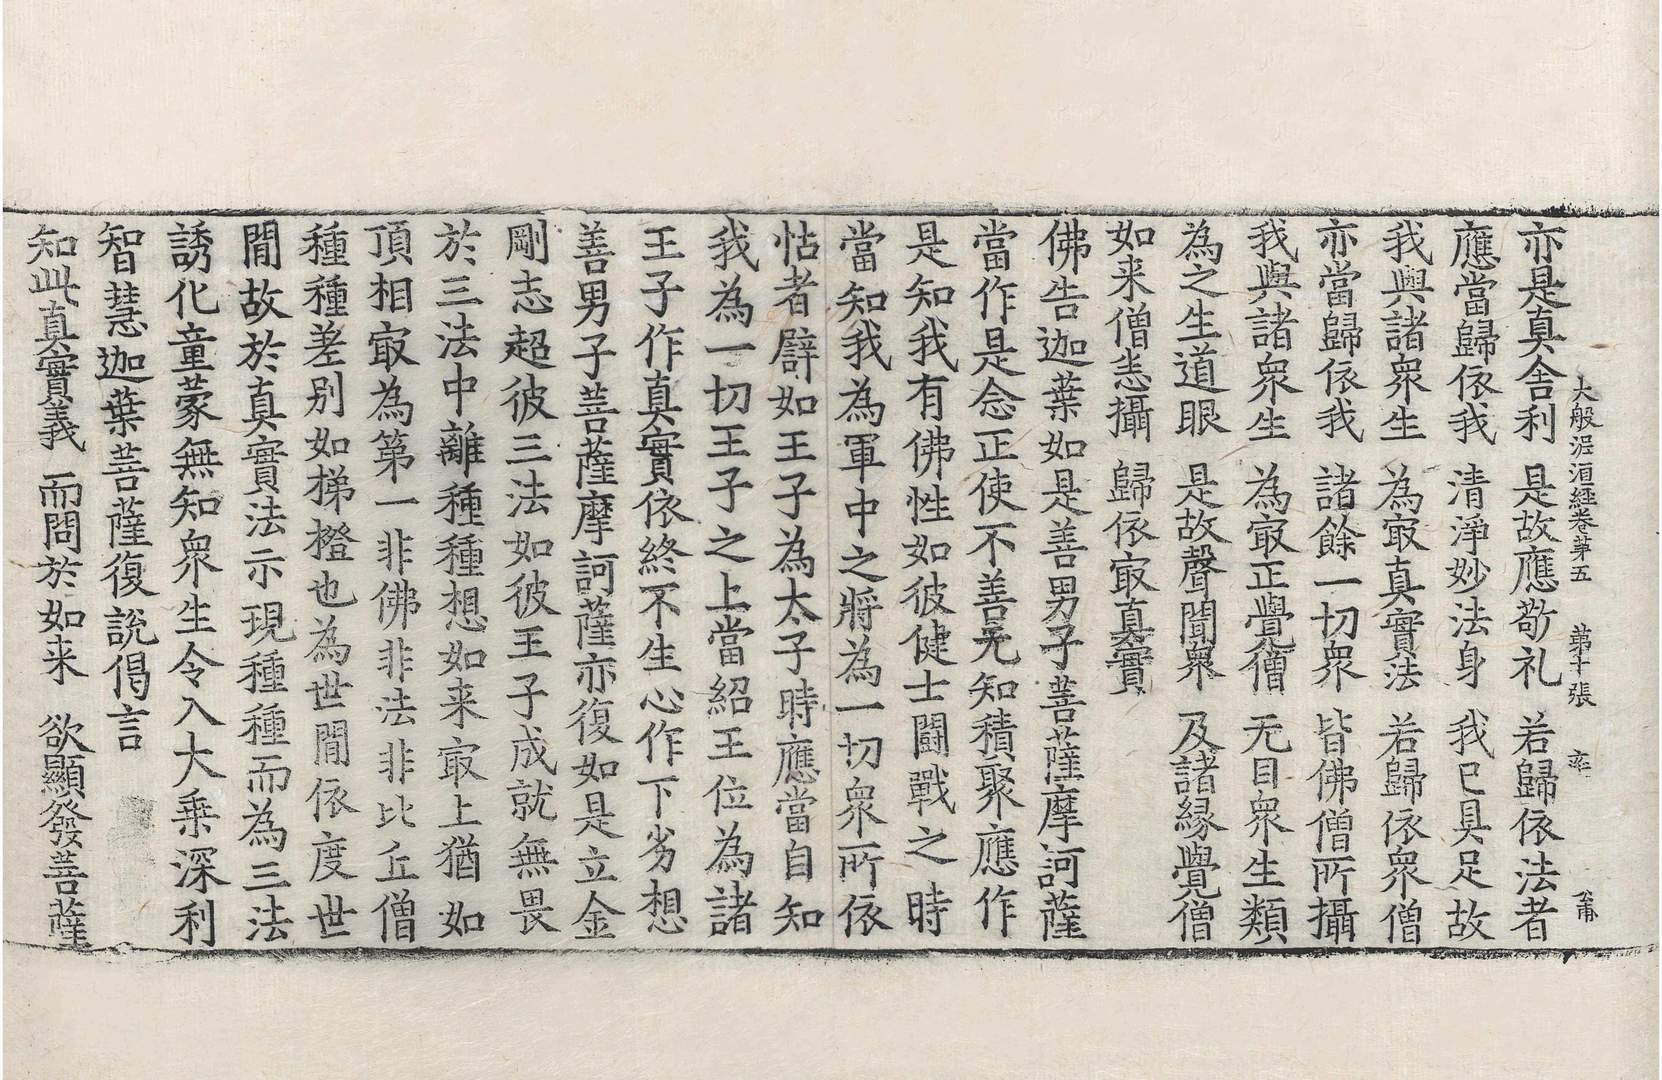 大般泥洹經卷第五 第十張
亦是真舍利 是故應敬礼 若歸依法者
應當歸依我 清淨妙法身 我已具足故
我與諸衆生 為㝡真實法 若歸依衆僧
亦當歸依我 諸餘一切衆 皆佛僧所攝
我與諸衆生 為㝡正覺僧 无目衆生類
為之生道眼 是故聲聞衆 及諸縁覺僧
如来僧悉攝 歸依㝡真實
佛告迦葉如是善男子菩薩摩訶薩
當作是念正使不善无知積聚應作
是知我有佛性如彼健士鬪戰之時
當知我為軍中之將為一切衆所依
怙者譬如王子為太子時應當自知
我為一切王子之上當紹王位為諸
王子作真實依終不生心作下劣想
善男子菩薩摩訶薩亦復如是立金
剛志超彼三法如彼王子成就無畏
於三法中離種種想如来㝡上猶如
頂相㝡為第一非佛非法非比丘僧
種種差別如梯橙也為世間依度世
間故於真實法示現種種而為三法
誘化童蒙無知衆生令入大乘深利
智慧迦葉菩薩復説偈言
知此真實義 而問於如来 欲顯發菩薩